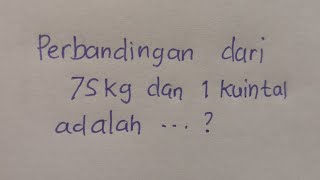 Perbandingan dari
75kg dan 1 kuintal
adalah ... ?